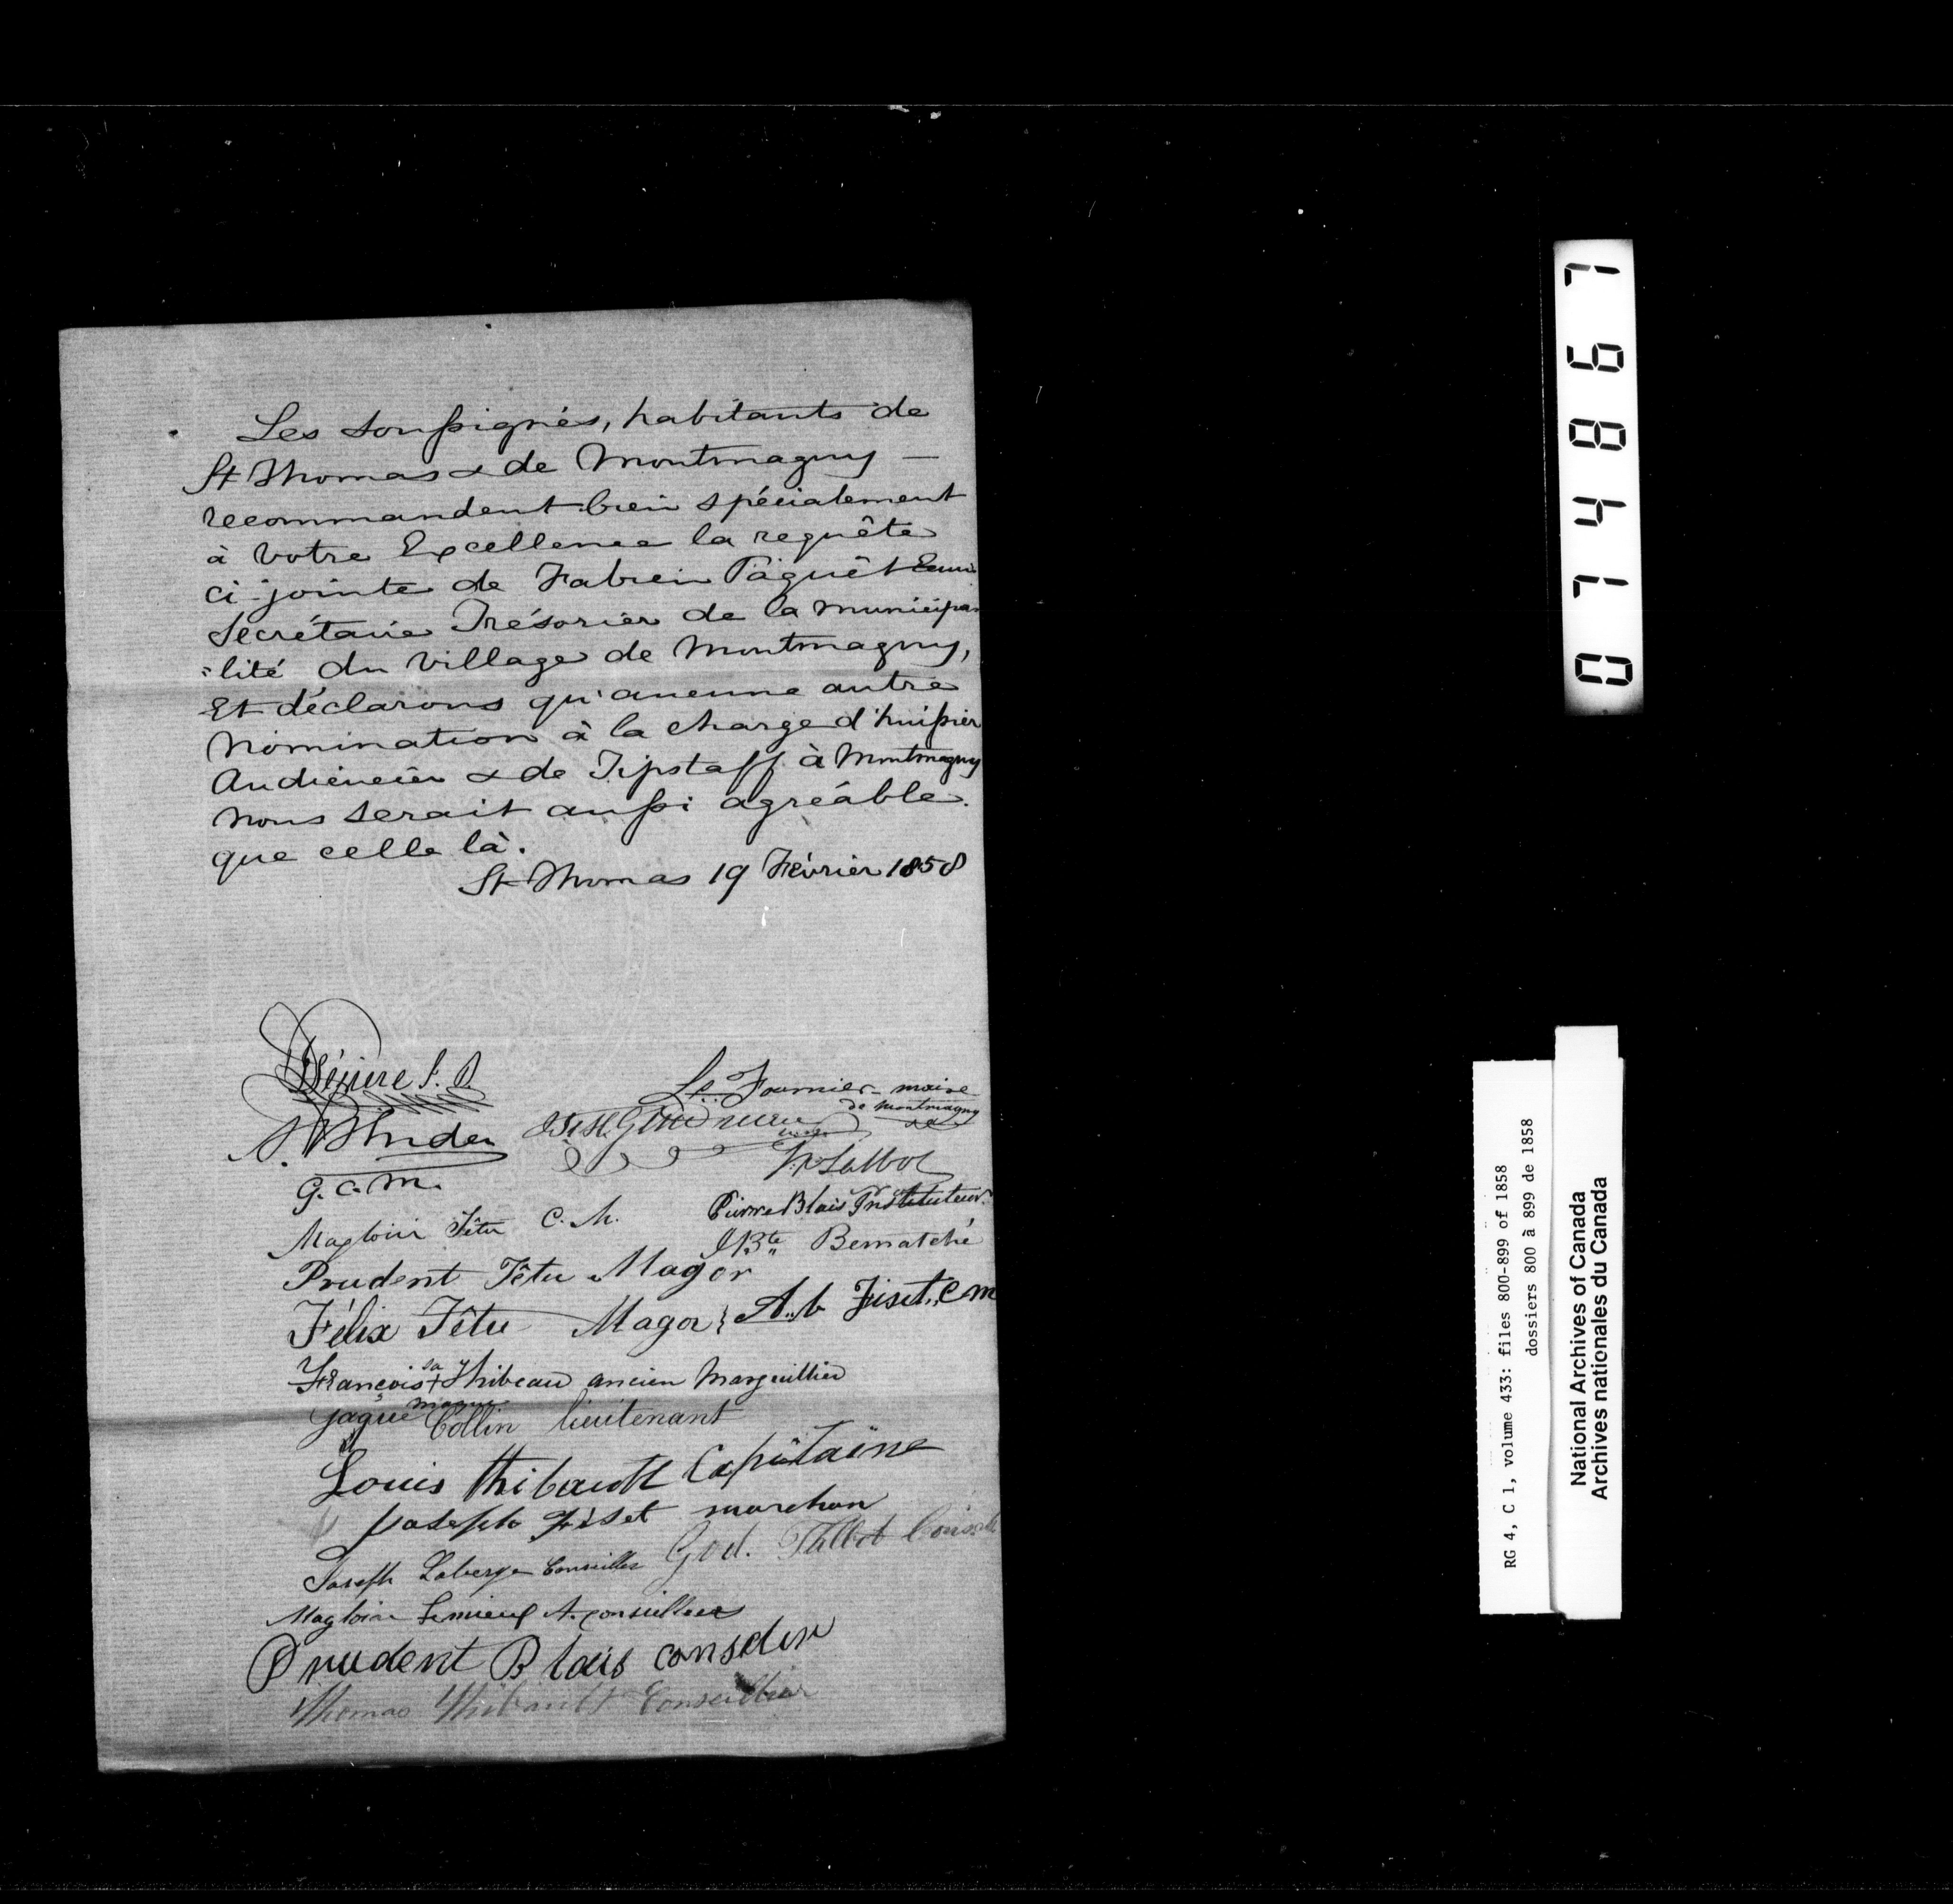 Les soussignés, habitants de
St Thomas & de Montmagny —
recommandent bien spécialement
à Votre Excellence la requête
ci-jointe de Fabien Paquêt
Secrétaire Trésorier de la municipa
=lité du Village de Montmagny,
Et déclarons qu'aucune autre
Nomination à la charge d'huissier
Audiencier & de Tipstaff à Montmagny
nous serait aussi agréable
que celle là.
St Thomas 19 Février 1858
Fournier - maire
de Montmagny
G. C. M.
Magloire Têtu C. M.
Pierre Blais Instituteur
J Bte Bernatché
Prudent Têtu Magor
Félix Têtu Magor
A. b Fiset, C m
François sa + marque Thibeau ancien Marguillier
Jaque Collin lieutenant
Louis Thibault Capitaine
Joseph Fiset marchan
Joseph Laberge Conseiller
God. Talbot
Magloire Lemieux A. conseiller
Prudent Blais
Thomas Thibault Conseiller
074867
RG 4, C 1, volume 433: files 800-899 of 1858
dossiers 800 à 899 de 1858
National Archives of Canada
Archives nationales du Canada